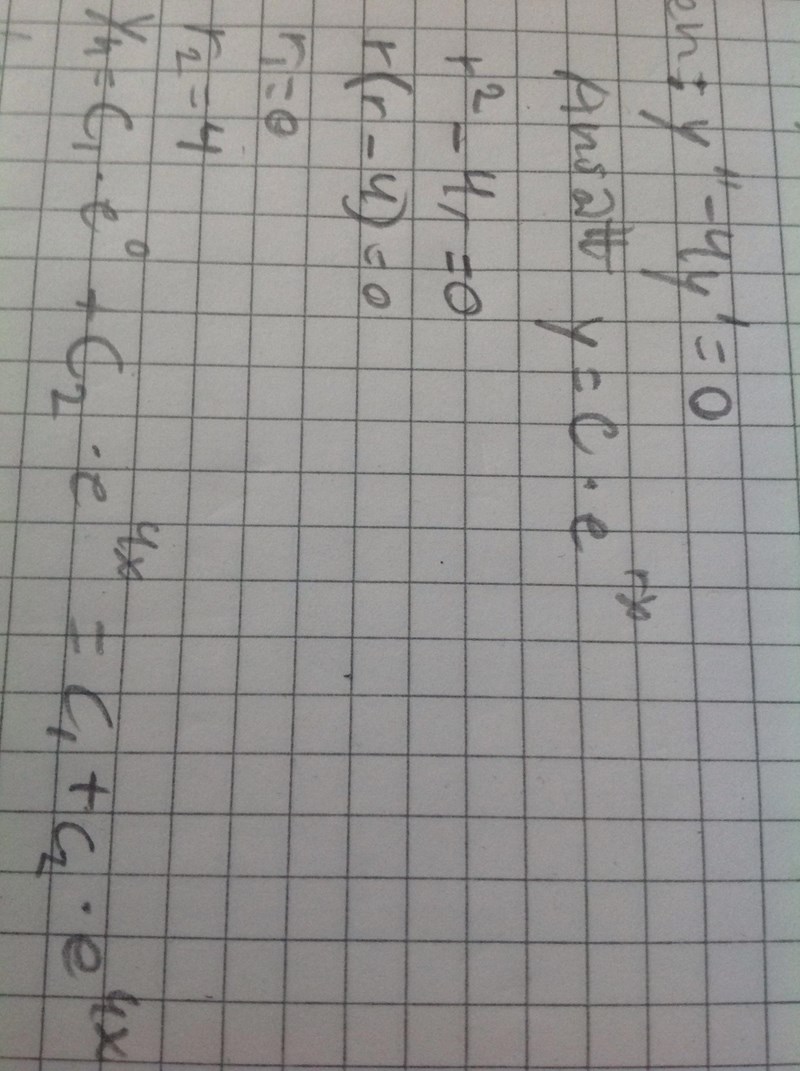 y'' - 4y' = 0
Ansatt y = C · e^rx
r² - 4r = 0
r(r - 4) = 0
r₁ = 0
r₂ = 4
yₕ = C₁ · e⁰ + C₂ · e^4x = C₁ + C₂ · e^4x